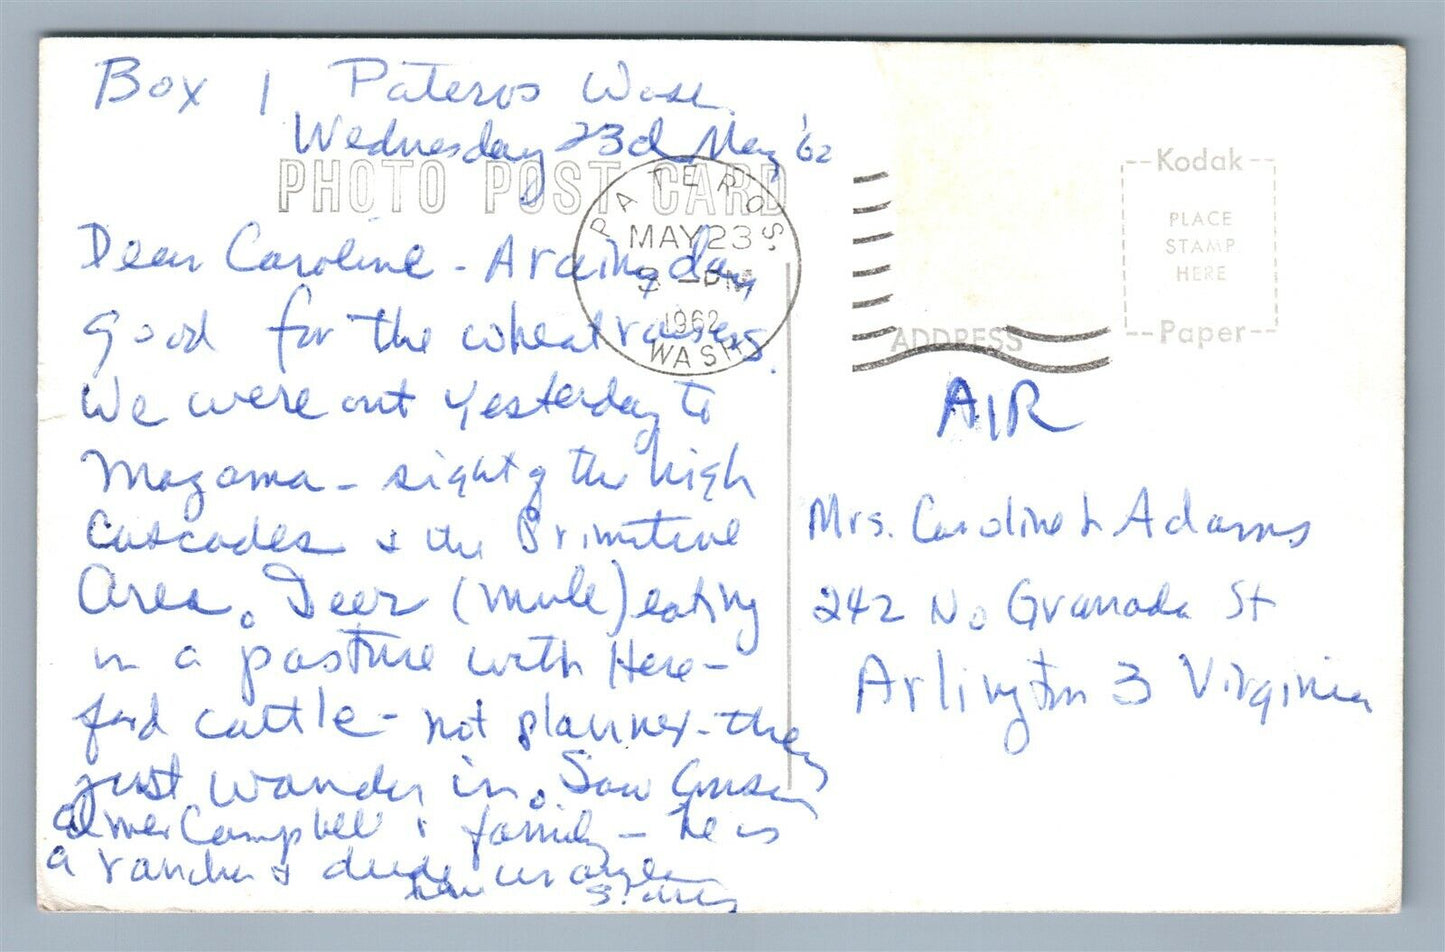 Box 1 Pateros Wash.
Wednesday 23d May '62
PHOTO POST CARD
PATEROS.
MAY 23
PM
1962
WASH.
Dear Caroline - A raining day
good for the wheat raisers.
We were out yesterday to
Mazama - sight of the high
Cascades & the Primitive
Area. Deer (mule) eating
in a pasture with Here-
ford cattle - not planned - they
just wander in. Saw Cousin
Elmer Campbell & family - he is
a rancher & dude wrangler
Kodak
PLACE
STAMP
HERE
Paper
ADDRESS
AIR
Mrs. Caroline L Adams
242 No Granada St
Arlington 3 Virginia